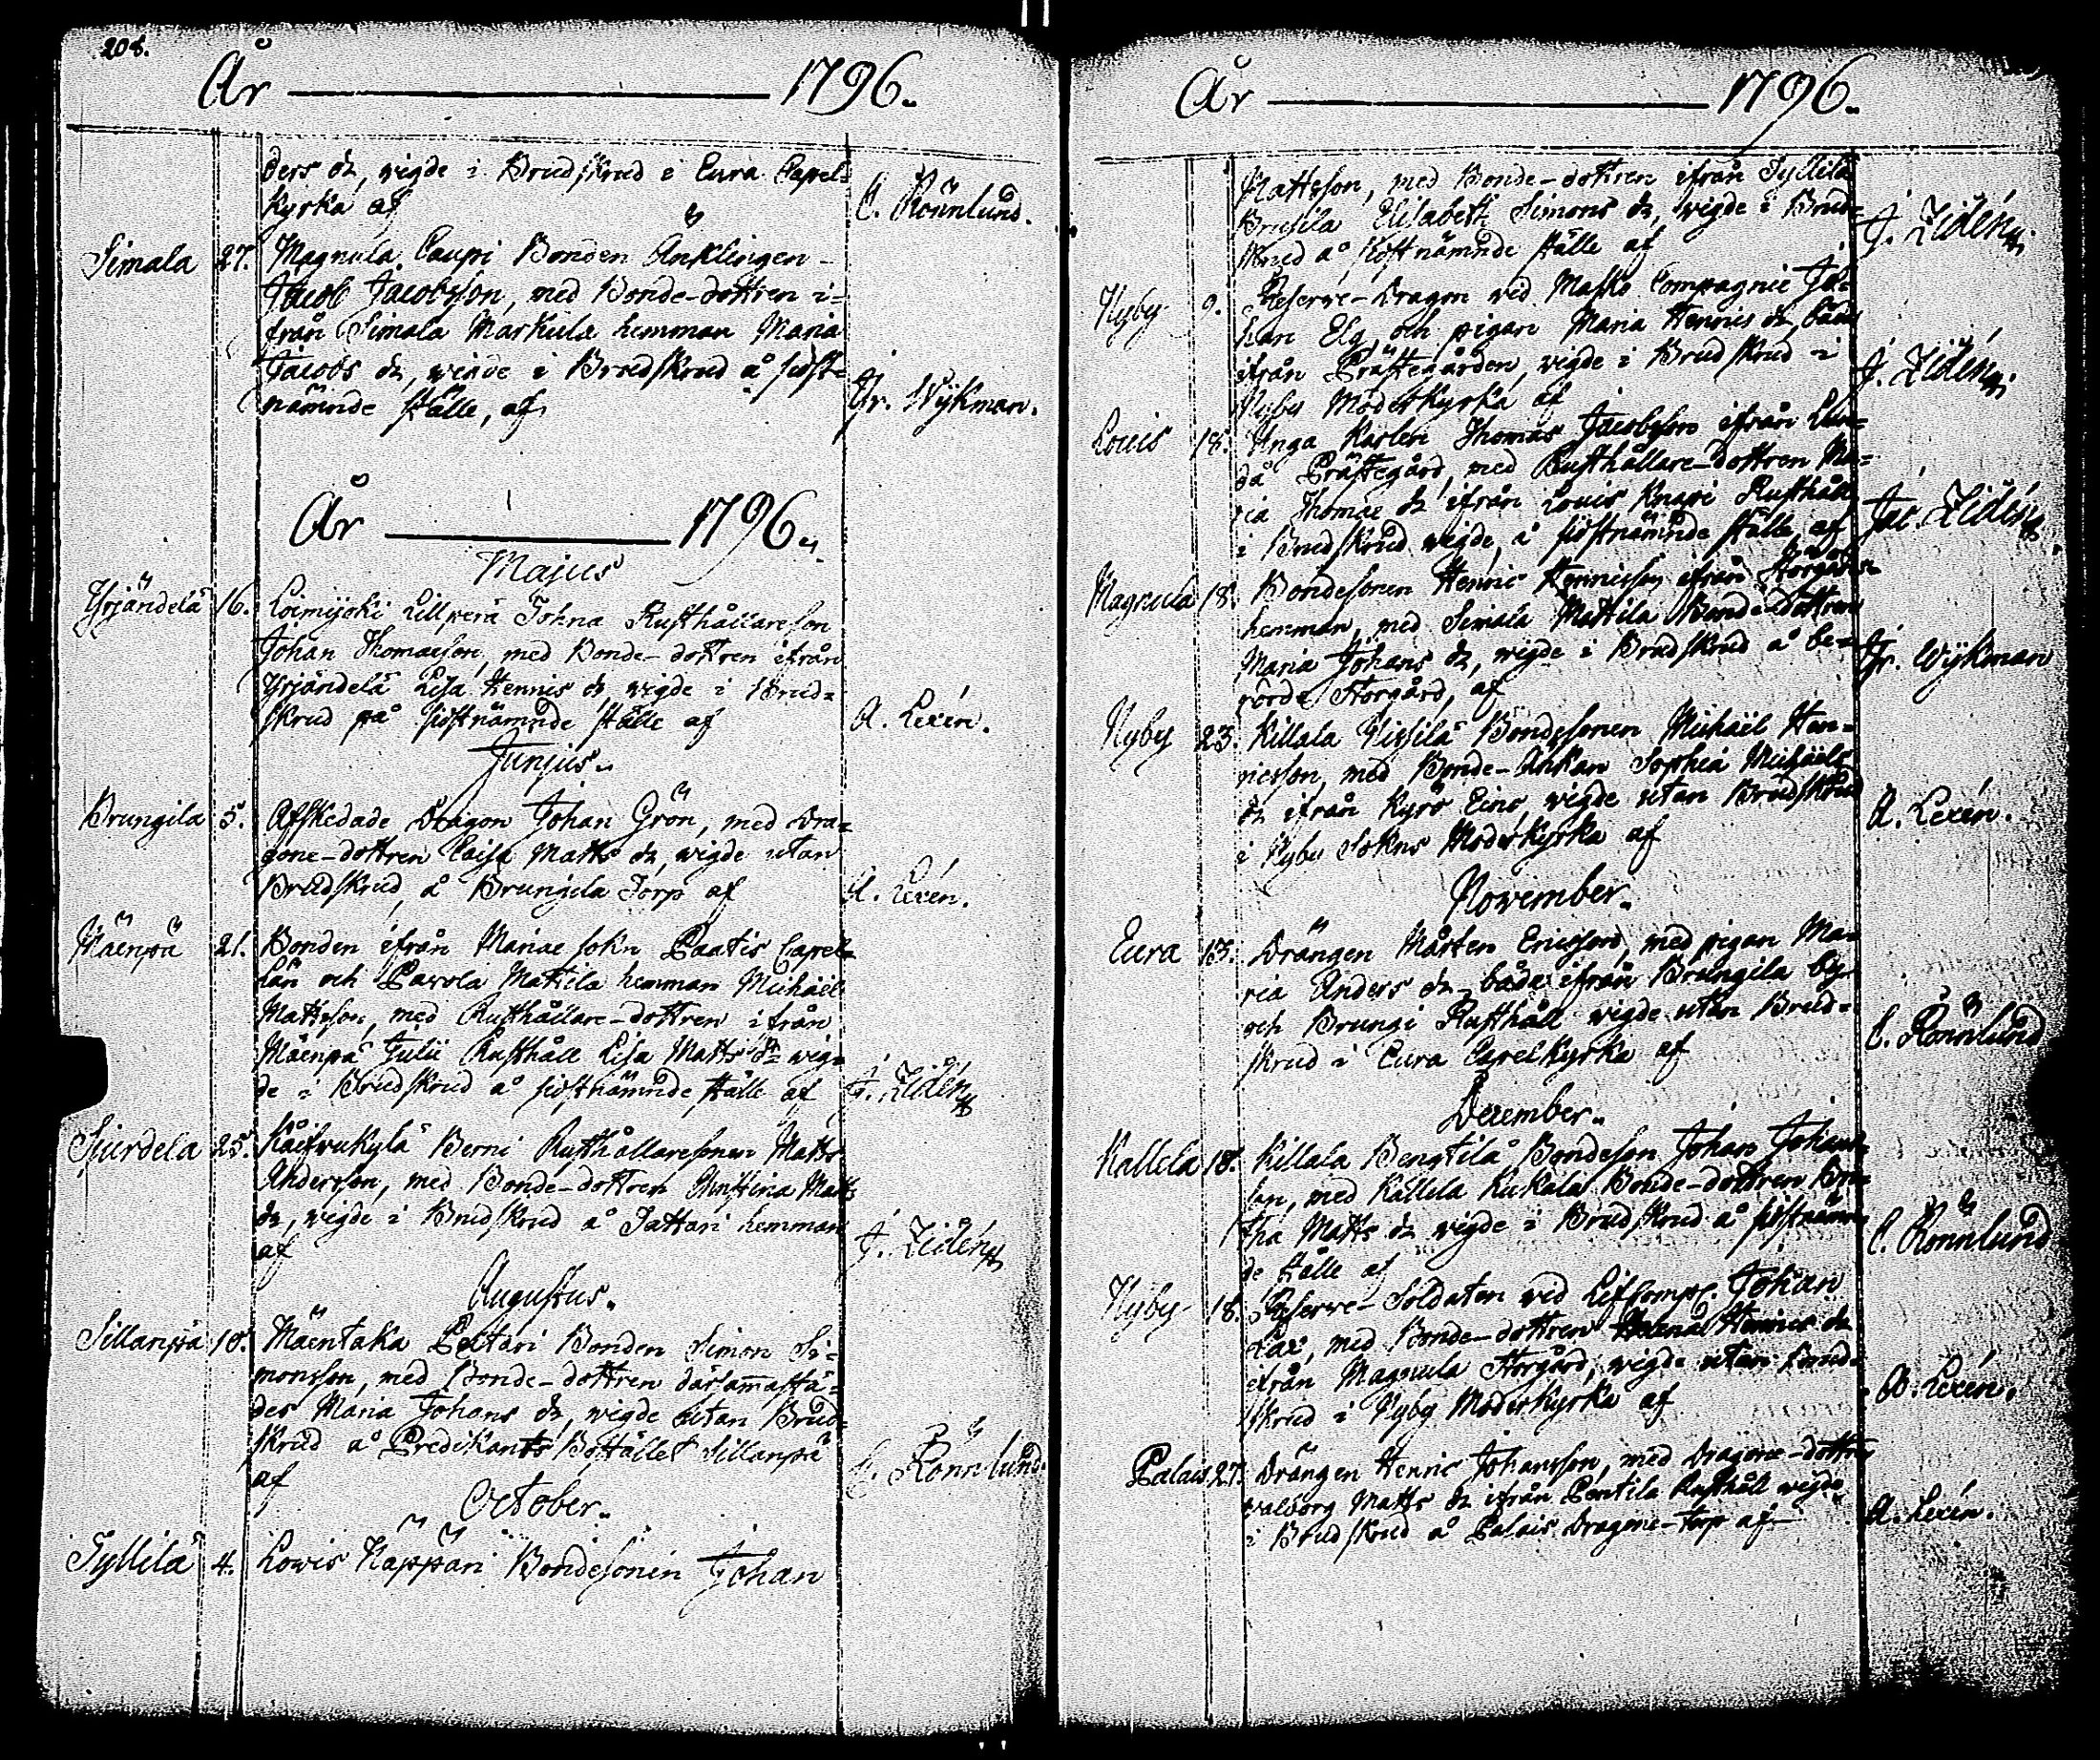 208.
År 1796.
ders dr, vigde i Brudskrud i Eura Capel=
kyrka af C. Rönnlund.
Simala 27. Magnula Caupi Bonden Änklingen
Jacob Jacobsson, med Bonde-dottren i=
från Simala Markula hemman Maria
Jacobs dr, vigde i Brudskrud å sidst=
nämnde ställe, af Gr. Wijkman.
År 1796.
Majus
Yrjändelä 16. Loimijoki Lillperä Johna Rusthållareson
Johan Thomasson, med Bonde-dottren ifrån
Yrjändelä Lisa Henrics dr vigde i Brud=
skrud på sidstnämnde ställe af A. Lexén.
Junius.
Brungila 5. Afskedade Dragon Johan Grön, med Dra=
gone-dottren Caisa Matts dr, vigde utan
Brudskrud, å Brungila Torp af A. Lexén.
Mäenpä 21. Bonden ifrån Mariae sokn Paatis Capel=
län och Pavola Mattila hemman Michaël
Mattsson, med Rusthållare-dottren ifrån
Mäenpä Juli Rusthåll Lisa Matts dr vig=
de i Brudskrud å sidstnämnde ställe af J. Zidén
Sjurdela 25. Berni Rusthållaresonen Matts
Andersson, med Bonde-dottren Christina Matts
dr, vigde i Brudskrud å Tattari hemman
af J. Zidén
Augustus.
Sillanpä 18. Mäentaka Pertari Bonden Simon Si=
monsson, med Bonde-dottren därsammastä=
des Maria Johans dr, vigde utan Brud=
skrud å Predikants Bostället Sillanpä
af C. Rönnlund.
October.
Tyllilä 4. Lowis Näppäri Bondesonen Johan
År 1796.
Mattsson, med Bonde-dottren ifrån Tyllilä
Brusila Elisabeth Simons dr, vigde i Brud=
skrud å sidstnämnde ställe af J. Zidén
Nyby 9. Reserve-Dragon vid Masko Compagnie Jo=
han Elg, och pigan Maria Henrics dr, båda
ifrån Prästegården, vigde i Brudskrud i
Nyby Moderkyrka af J. Zidén.
Louis 18. Unga Karlen Thomas Jacobsson ifrån Lun=
då Prästegård, med Rusthållare-dottren Ma=
ria Thomae dr ifrån Louis Knapi Rusthåll
i Brudskrud vigde, å sidstnämnde ställe af Jac. Zidén
Magnula 18. Bondesonen Henric Henricsson ifrån Storgårds
hemman, med Simala Mattila Bonde-Dottren
Maria Johans dr, vigde i Brudskrud å be=
rörde Storgård, af Gr. Wijkman
Nyby 23. Killala Uusilä Bondesonen Michaël Hen=
ricsson, med Bonde-Änkan Sophia Michaels
dr ifrån Kyrö Eino vigde utan Brudskrud
i Nyby Sokns Moderkyrka af A. Lexén.
November.
Eura 13. Drängen Mårten Ericsson, med pigan Ma=
ria Anders dr båda ifrån Brungila by
och Brungi Rusthåll vigde utan Brud=
skrud i Eura Capelkyrka af C. Rönnlund
December.
Kallela 18. Killala Bengtilä Bondeson Johan Johans=
son, med Källela Kukala Bonde-dottren Bri=
tha Matts dr vigde i Brudskrud å sidstnämn=
de ställe af C. Rönnlund
Nyby 18. Reserve-Soldaten vid Lifcomp. Johan
Lax, med Bonde-dottren Helena Henrics dr
ifrån Magnula Storgård, vigde utan brud=
skrud i Nyby Moderkyrka af A. Lexén.
Palais 27. Drängen Henric Johansson, med Dragone-dottren
Walborg Matts dr ifrån Pentila Rusthåll vigde
i Brudskrud å Palais Dragone-torp af A. Lexén.